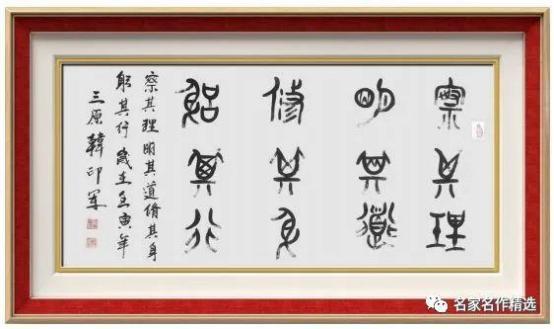 察其理
明其道
脩其身
躬其行
察其理明其道脩其身
躬其行歲在壬寅年
三原韓印军
名家名作精选